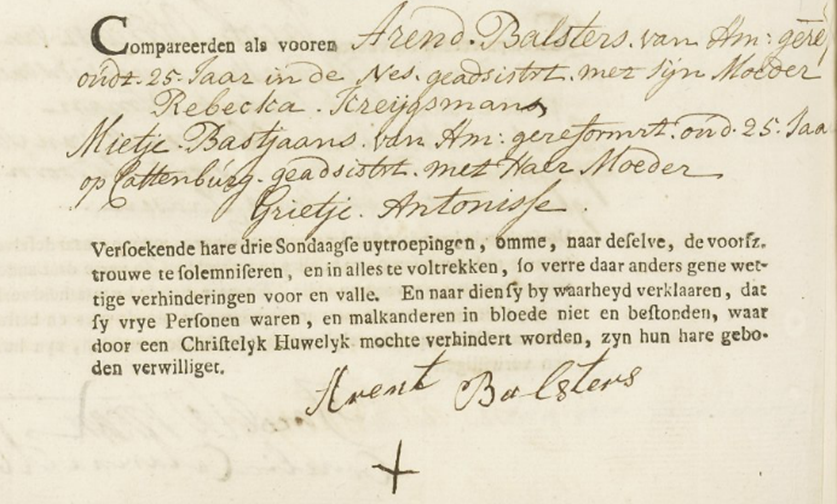 Compareerden als vooren Arend. Balsters. van Am: gere
oudt. 25. Jaar in de Nes. geadsistrt. met sijn Moeder
Rebecka. Kreijgsmans,
Mietje. Bastjaans. van Am: gereformrt. oud. 25. Jaa
op Cattenburg. geadsistrt. met Haer Moeder
Grietje. Antonisse.
Versoekende hare drie Sondaagſe uytroepingen, omme, naar deſelve, de voorſz.
trouwe te ſolemniſeren, en in alles te voltrekken, ſo verre daar anders gene wet-
tige verhinderingen voor en valle. En naar dien ſy by waarheyd verklaaren, dat
ſy vrye Perſonen waren, en malkanderen in bloede niet en beſtonden, waar
door een Chriſtelyk Huwelyk mochte verhindert worden, zyn hun hare gebo-
den verwilliget.
Arent Balsters